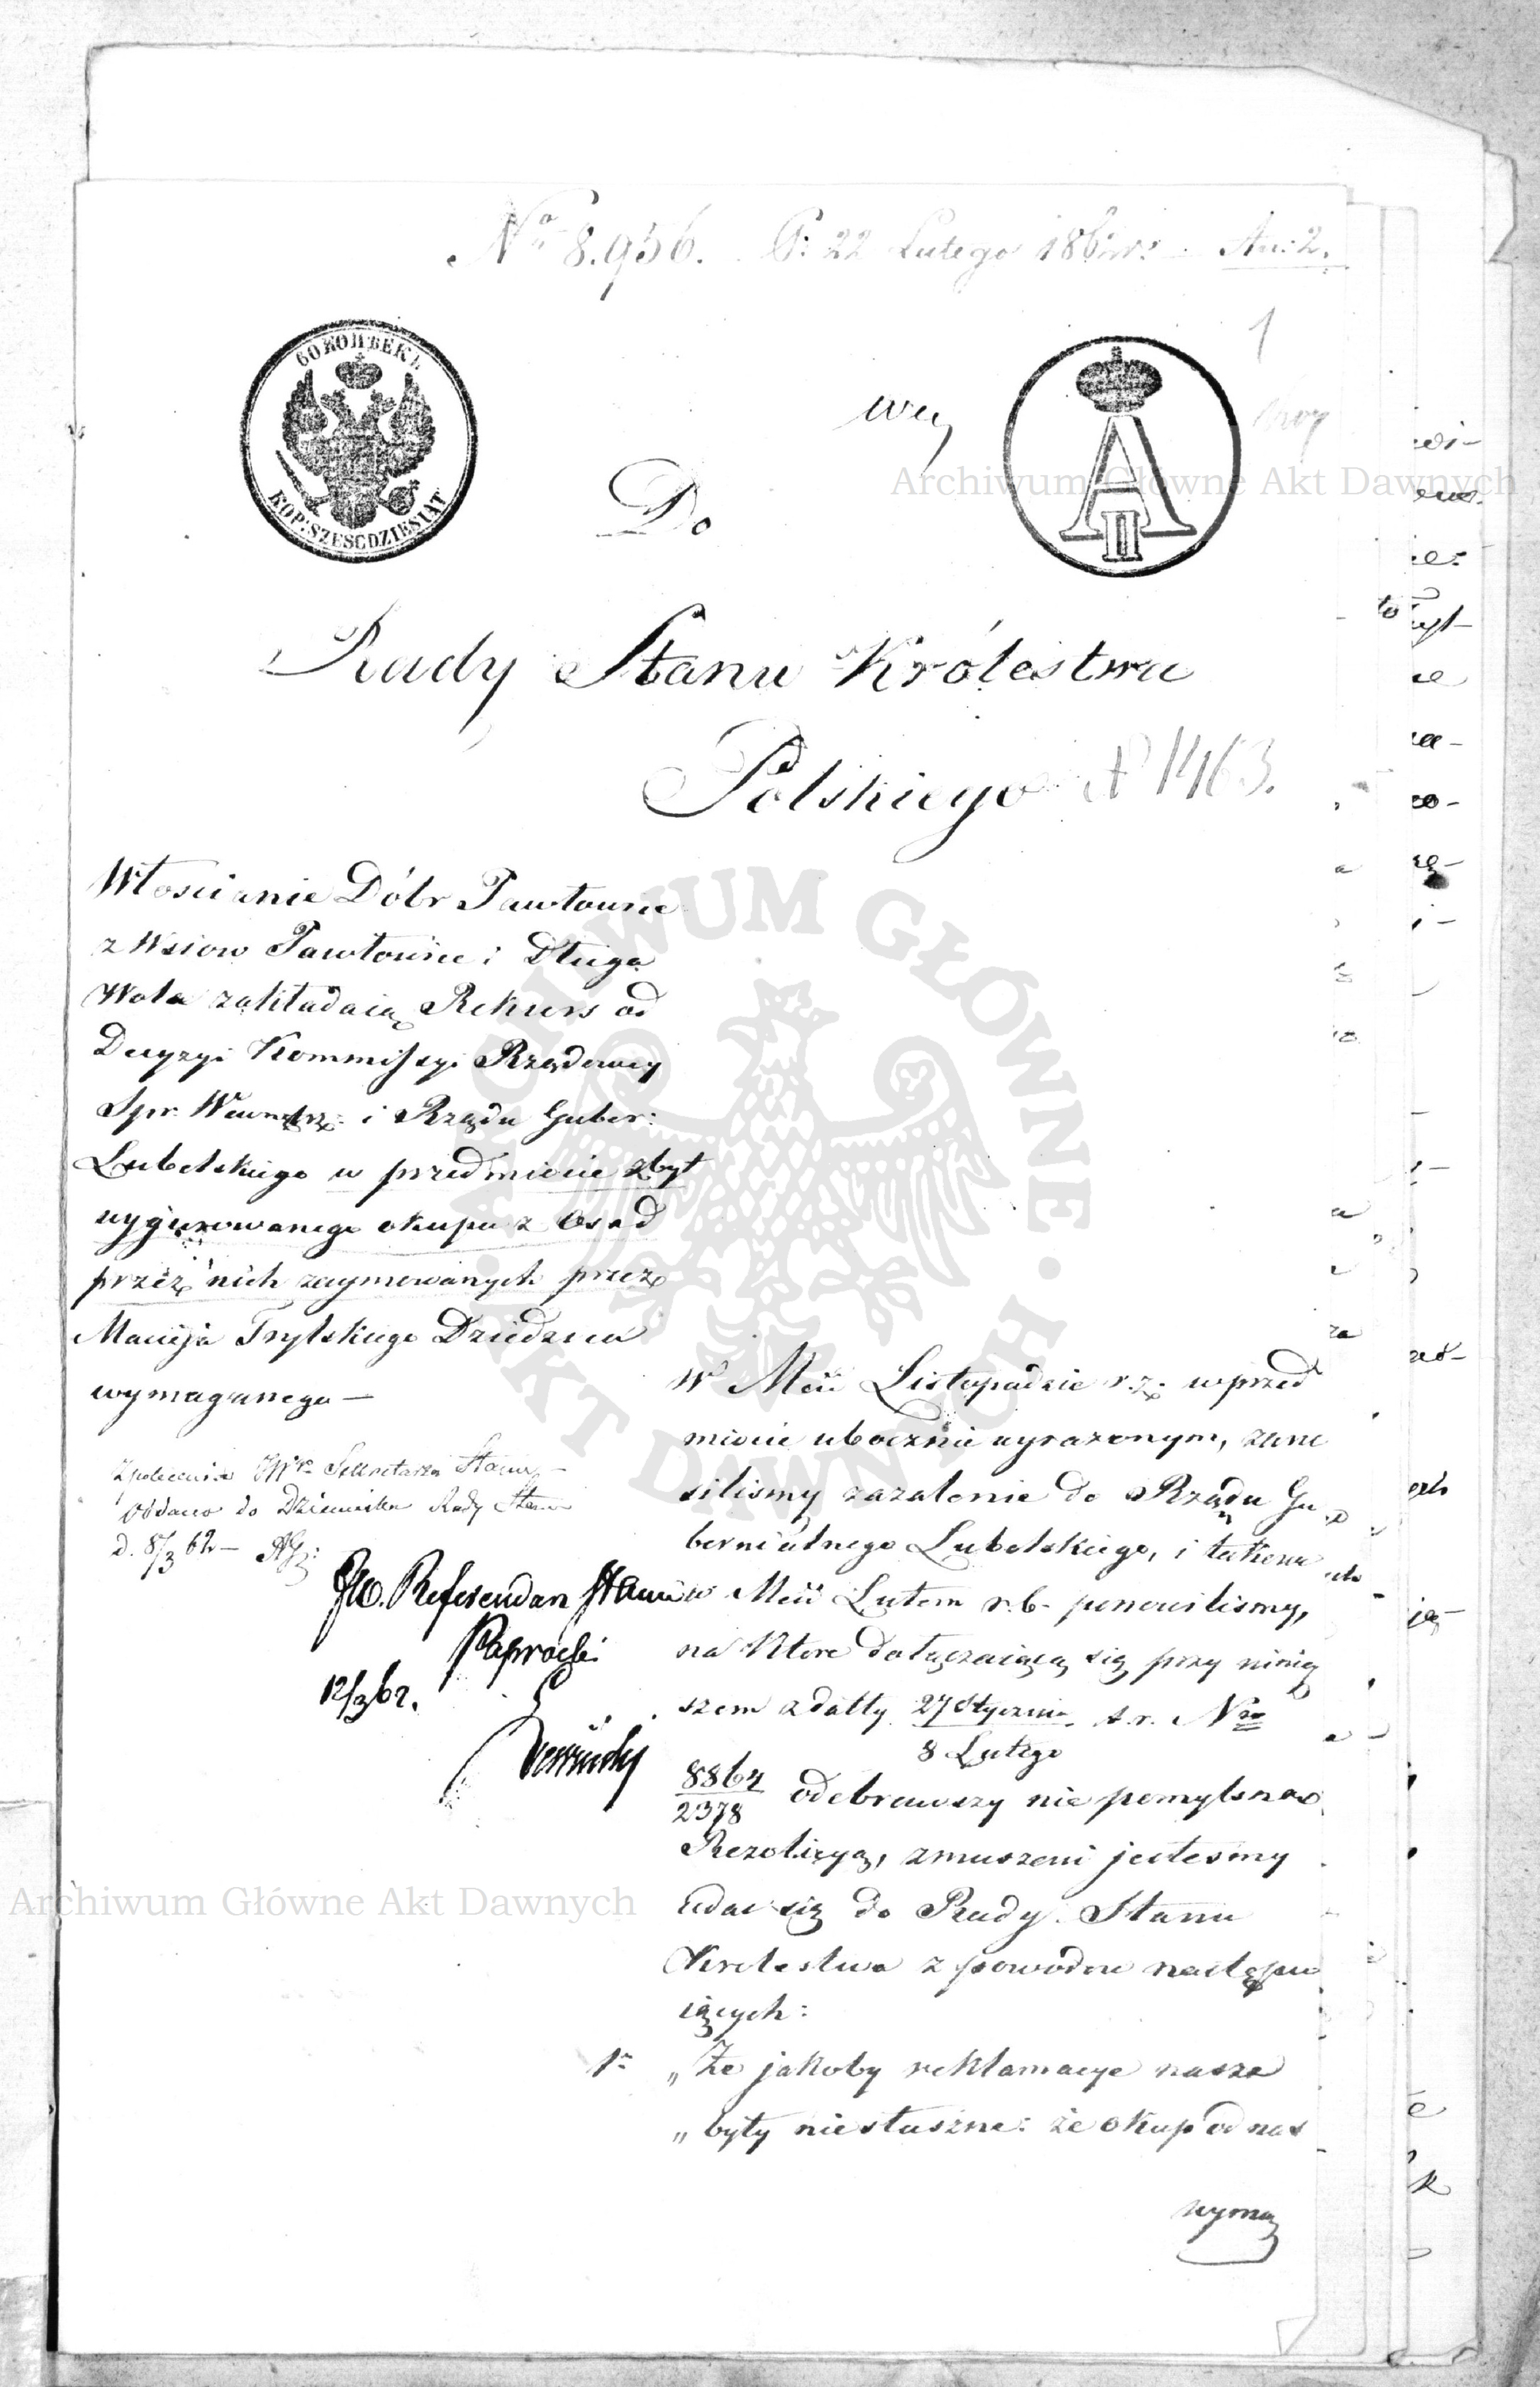 No 8.956. P: 22 Lutego 1862 r: An: 2.
1
60 КОПѢЕКЪ
KOP: SZESCDZIESIĄT
A II
Archiwum Główne Akt Dawnych
Do
Rady Stanu Królestwa
Polskiego
N 1463.
ARCHIWUM GŁÓWNE AKT DAWNYCH
Włoscianie Dóbr Pawłowice
z Wsiow Pawłowice i Długa
Wola zakładaią Rekurs od
Decyzyi Kommissyi Rządowey
Spr: Wewnętrz: i Rządu Guber:
Lubelskiego w przedmiocie zbyt
wygurowanego okupu z Osad
przez nich zaymowanych przez
Macieja Trylskiego Dziedzica
wymaganego —
Z polecenia JW Sekretarza Stanu
Oddano do Dziennika Rady Stanu
d. 8/3 62 —
Referendarz Stanu
Paprocki
12/3 62.
W Mcu Listopadzie r. z. w przed
miocie ubocznie wyrazonym, zano
silismy zazalenie do Rządu Gu
bernialnego Lubelskiego, i takowe
w Mcu Lutem r. b. ponowilismy,
na Ktore dołączaiącą się przy niniey
szem z datty 27 Stycznia / 8 Lutego t. r. Nro
8864 / 2378 odebrawszy nie pomyslną
Rezolicyą, zmuszeni jestesmy
udac się do Rady Stanu
Krolestwa z powodow następu
iących:
1o „Że jakoby reklamacye nasze
„były niesłuszne: że okup od nas
wyma
Archiwum Główne Akt Dawnych